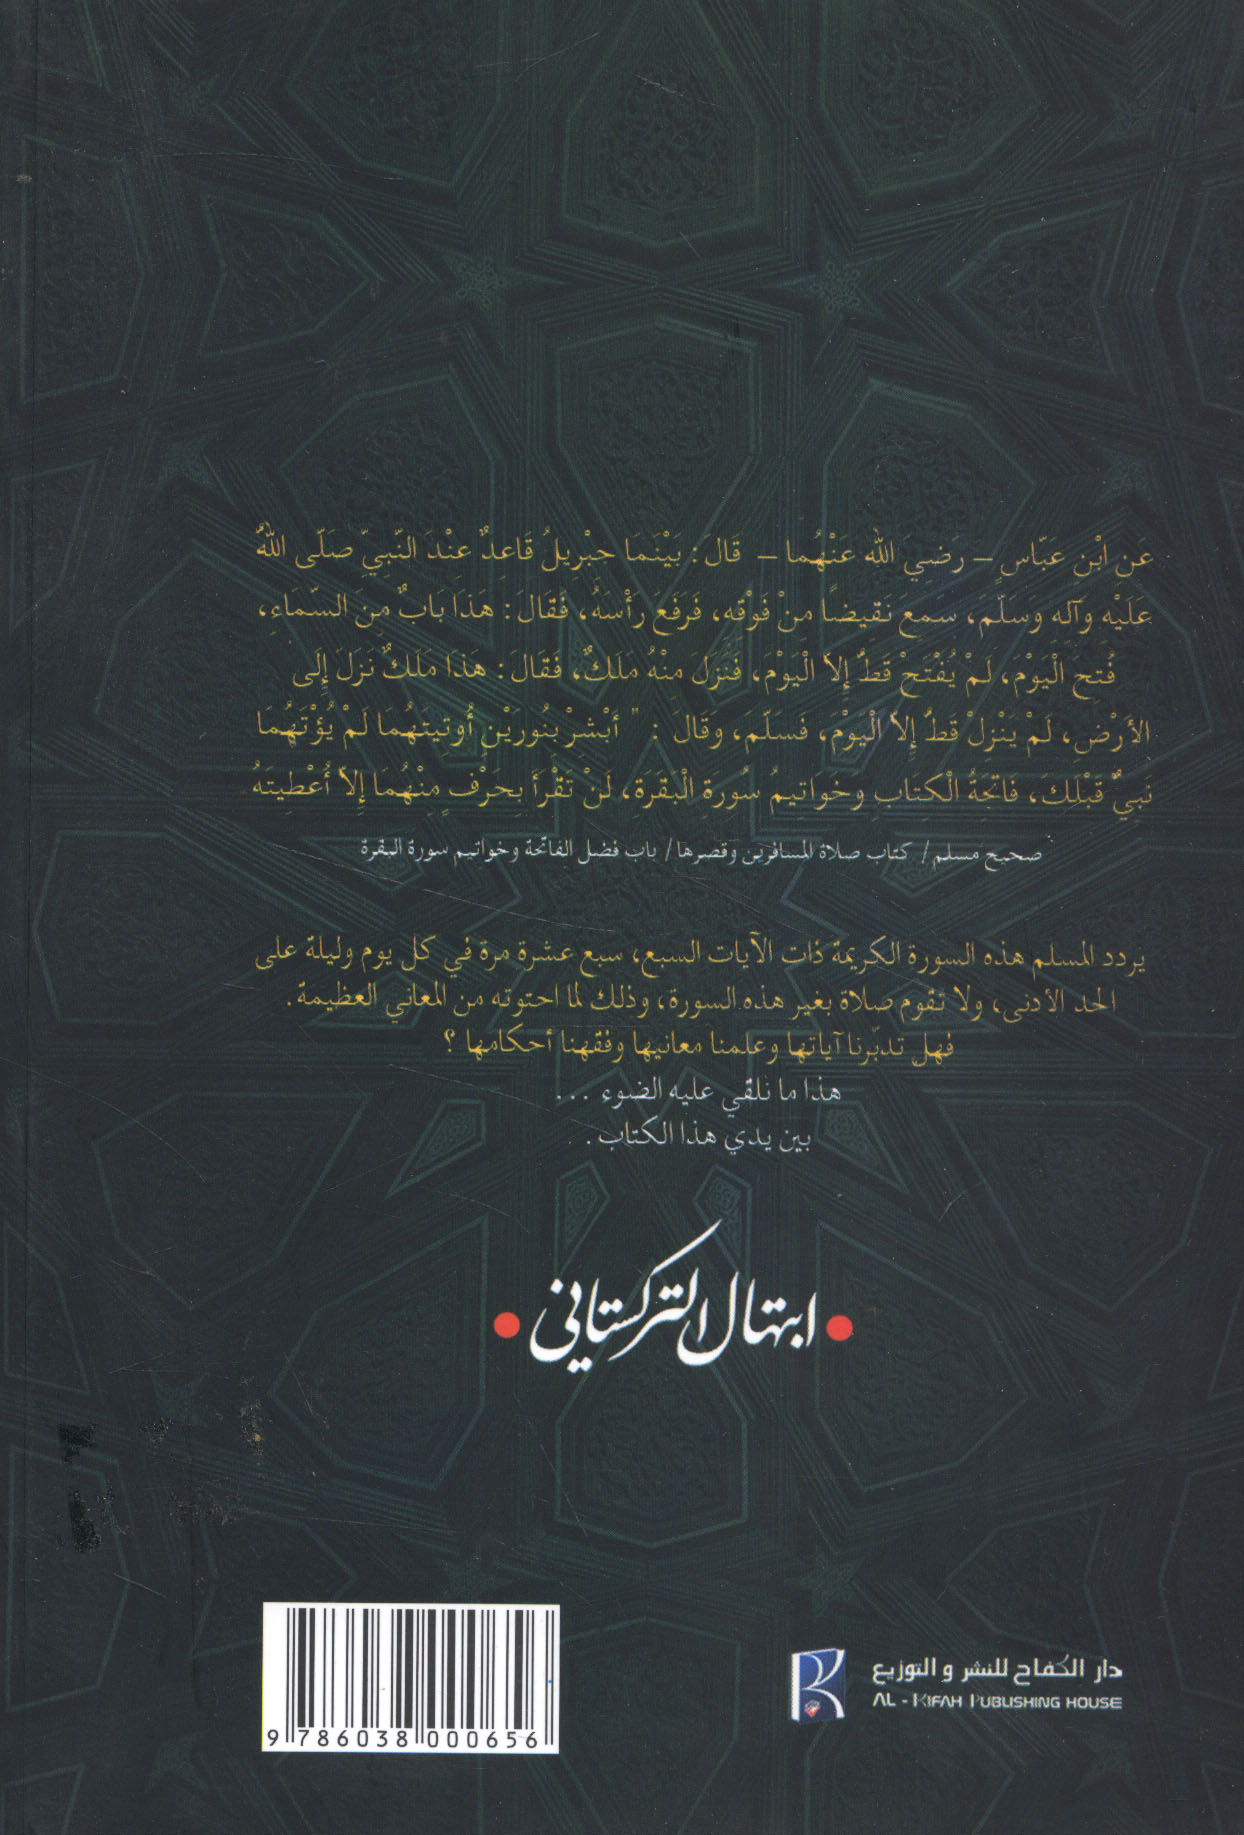 عَنِ ابْنِ عَبَّاسٍ – رَضِيَ اللهُ عَنْهُما – قَالَ: بَيْنَمَا جِبْرِيلُ قَاعِدٌ عِنْدَ النَّبِيِّ صَلَّى اللهُ
عَلَيْهِ وَآلِهِ وَسَلَّم، سَمِعَ نَقِيضًا مِنْ فَوْقِهِ، فَرَفَعَ رَأْسَهُ، فَقَالَ: هَذَا بَابٌ مِنَ السَّمَاءِ،
فُتِحَ الْيَوْمَ، لَمْ يُفْتَحْ قَطُّ إِلاَّ الْيَوْمَ، فَنَزَلَ مِنْهُ مَلَكٌ، فَقَالَ: هَذَا مَلَكٌ نَزَلَ إِلَى
الأَرْضِ، لَمْ يَنْزِلْ قَطُّ إِلاَّ الْيَوْمَ، فَسَلَّمَ، وَقَالَ: " أَبْشِرْ بِنُورَيْنِ أُوتِيتَهُمَا لَمْ يُؤْتَهُمَا
نَبِيٌّ قَبْلَكَ، فَاتِحَةُ الْكِتَابِ وَخَوَاتِيمُ سُورَةِ الْبَقَرَةِ، لَنْ تَقْرَأَ بِحَرْفٍ مِنْهُمَا إِلاَّ أُعْطِيتَهُ
صحيح مسلم/ كتاب صلاة المسافرين وقصرها/ باب فضل الفاتحة وخواتيم سورة البقرة
يردد المسلم هذه السورة الكريمة ذات الآيات السبع، سبع عشرة مرة في كل يوم وليلة على
الحد الأدنى، ولا تقوم صلاة بغير هذه السورة، وذلك لما احتوته من المعاني العظيمة.
فهل تدبّرنا آياتها وعلمنا معانيها وفقهنا أحكامها ؟
هذا ما نلقي عليه الضوء ...
بين يدي هذا الكتاب .
• ابتهال التركستاني •
دار الكفاح للنشر و التوزيع
AL - KIFAH PUBLISHING HOUSE
9 786038 000656